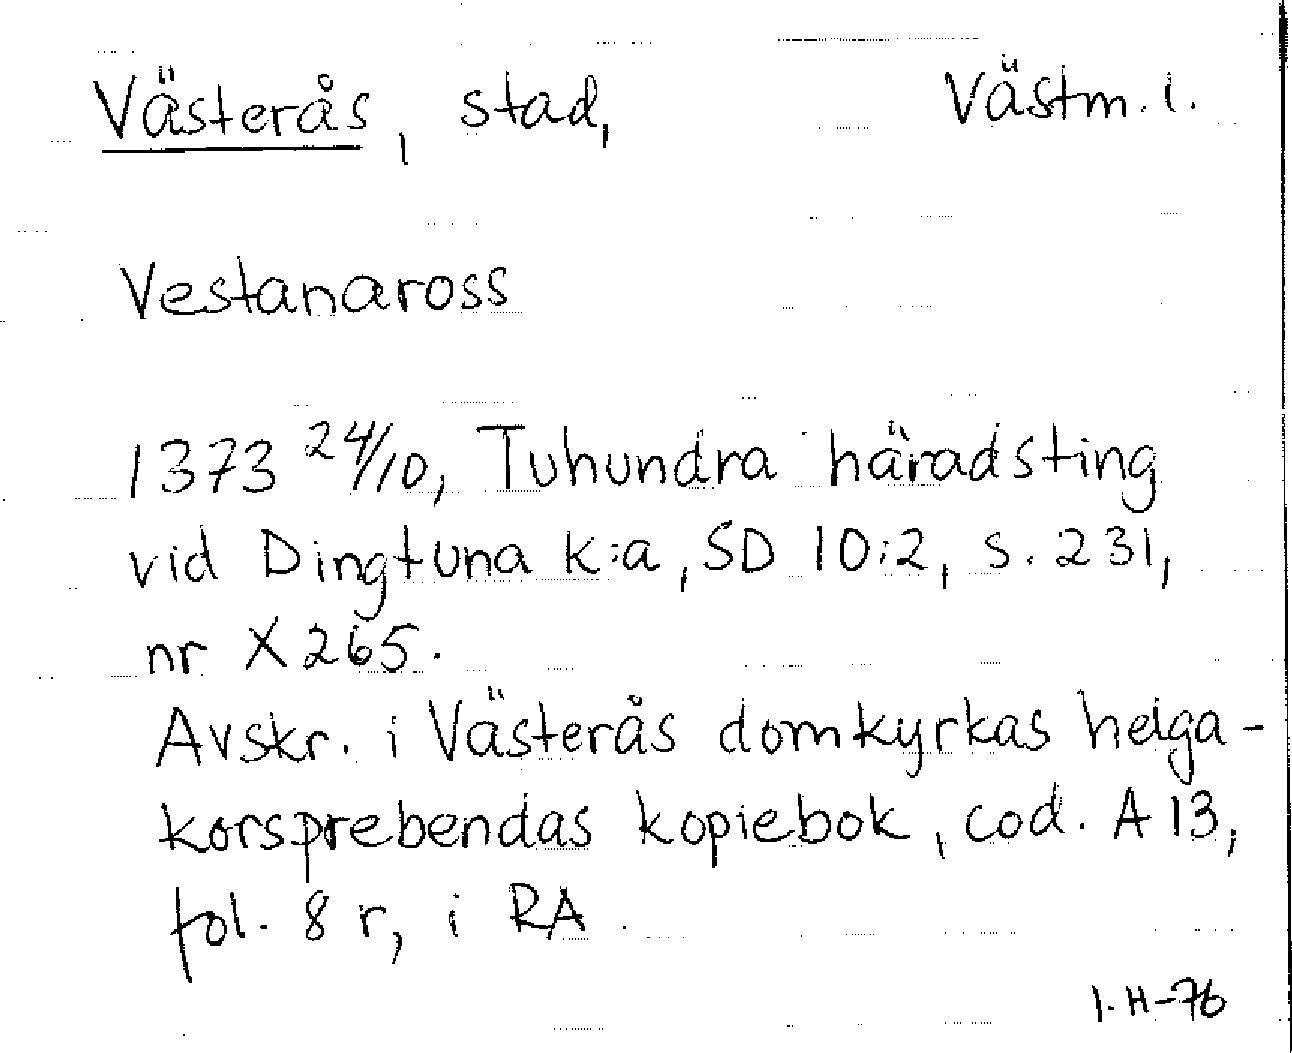 Västerås, stad, Västm. l.
Vestanaross
1373 24/10, Tuhundra häradsting
vid Dingtuna k:a, SD 10:2, s. 231,
nr X 265.
Avskr. i Västerås domkyrkas helga-
korsprebendas kopiebok, cod. A 13,
fol. 8 r, i RA.
I. H-76